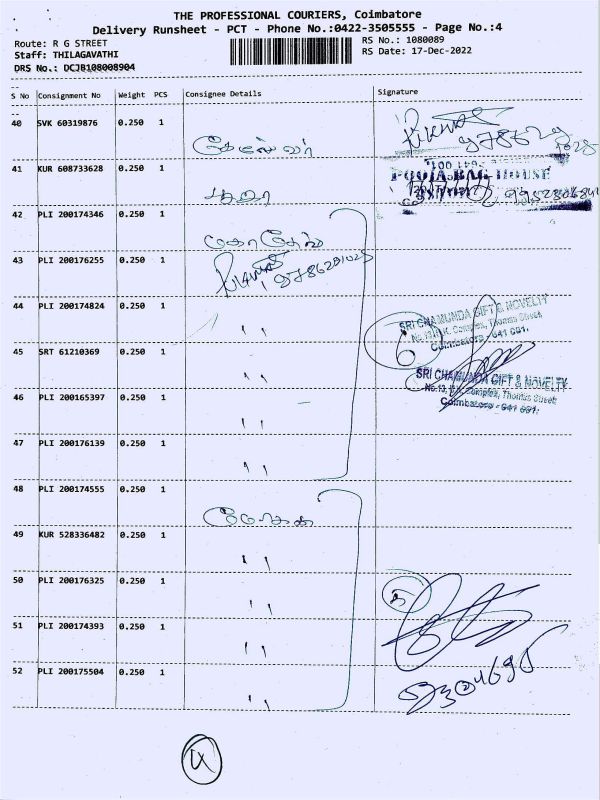 THE PROFESSIONAL COURIERS, Coimbatore
Delivery Runsheet - PCT - Phone No.:0422-3505555 - Page No.:4
Route: R G STREET
RS No.: 1080089
Staff: THILAGAVATHI
RS Date: 17-Dec-2022
DRS No.: DCJB108008904
S No Consignment No Weight PCS Consignee Details Signature
40 SVK 60319876 0.250 1
41 KUR 608733628 0.250 1
POOJA BAG HOUSE
42 PLI 200174346 0.250 1
43 PLI 200176255 0.250 1
9786291028
44 PLI 200174824 0.250 1 ''
SRI CHAMUNDA GIFT & NOVELTY
No.13, P.K. Complex, Thomas Street
Coimbatore - 641 001.
6
45 SRT 61210369 0.250 1 ''
SRI CHAMUNDA GIFT & NOVELTY
No.13, P.K. Complex, Thomas Street
Coimbatore - 641 001.
46 PLI 200165397 0.250 1 ''
47 PLI 200176139 0.250 1 ''
48 PLI 200174555 0.250 1
49 KUR 528336482 0.250 1 ''
50 PLI 200176325 0.250 1 ''
5
51 PLI 200174393 0.250 1 ''
52 PLI 200175504 0.250 1 ''
4